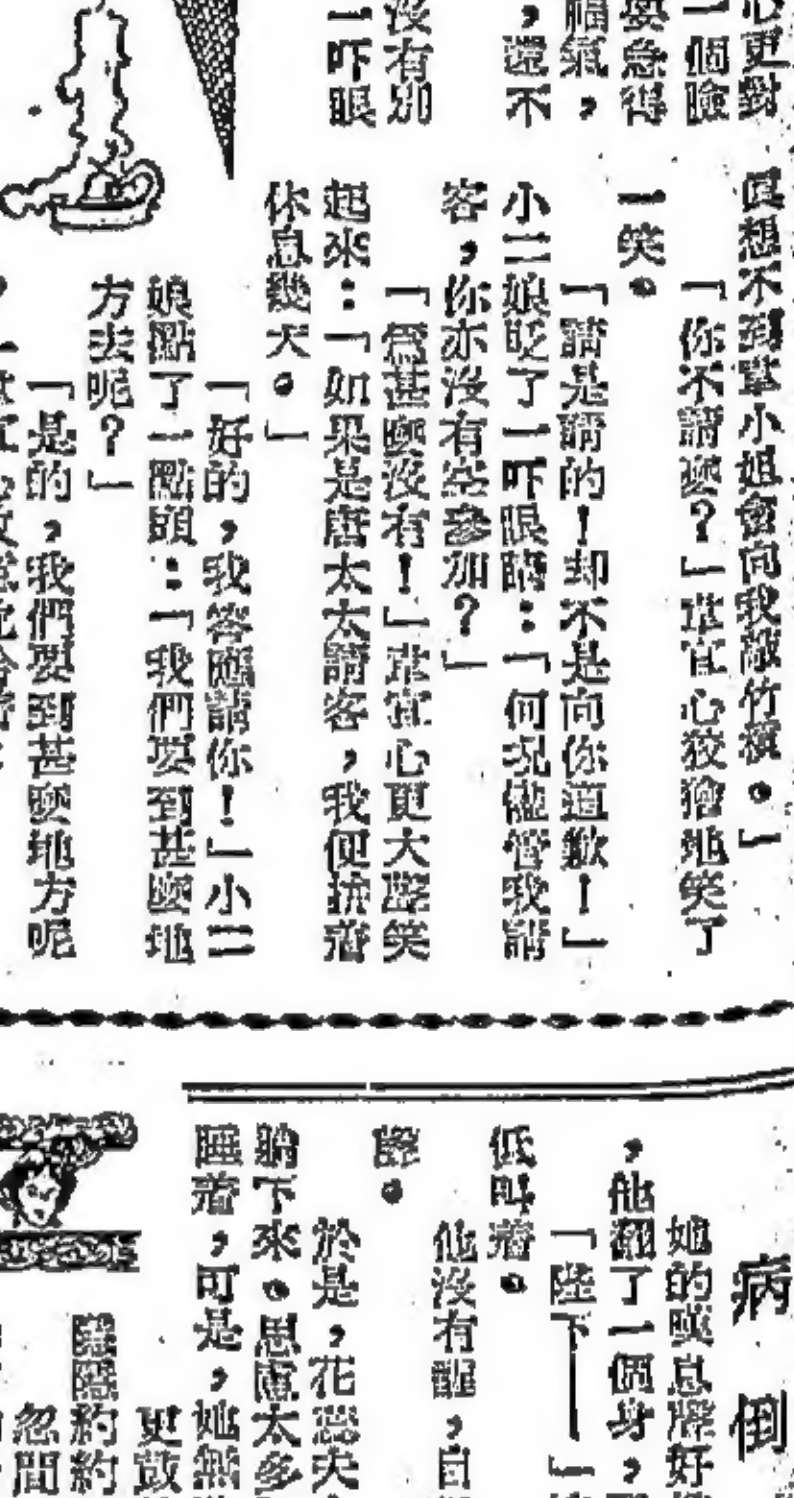 心更對
一個臉
要急得
福氣，
，還不
沒有別
一吓眼
眞想不到韋小姐會向我敲竹槓。」
「你不請麼？」韋宜心狡猾地笑了
一笑。
「請是請的！却不是向你道歉！」
小二娘眨了一吓眼睛：「何况儘管我請
客，你亦沒有空參加？」
「爲甚麼沒有！」韋宜心更大聲笑
起來：「如果是唐太太請客，我便拚着
休息幾天。」
「好的，我答應請你！」小二
娘點了一點頭：「我們要到甚麼地
方去呢？」
「是的，我們要到甚麼地方呢
病倒
她的嘆息聲好
，他翻了一個身，
「陛下——」
低叫着。
他沒有醒，自
於是，花蕊夫
躺下來。思慮太多
睡着，可是，她無
更鼓
隱隱約約
忽間